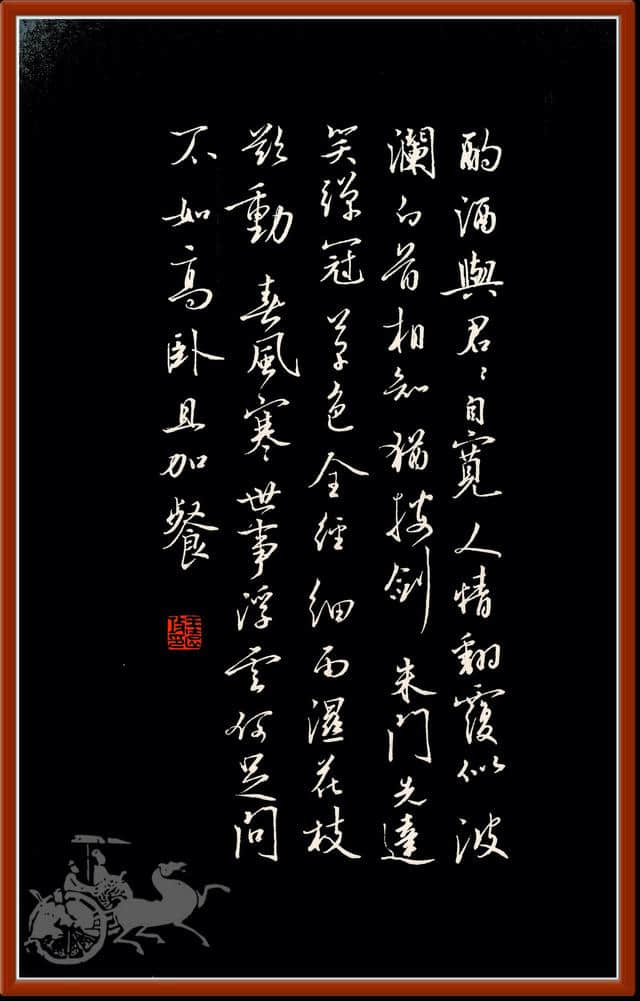 酌酒與君君自寬人情翻覆似波
瀾白首相知猶按劍朱門先達
笑彈冠草色全經細雨濕花枝
欲動春風寒世事浮雲何足問
不如高卧且加餐